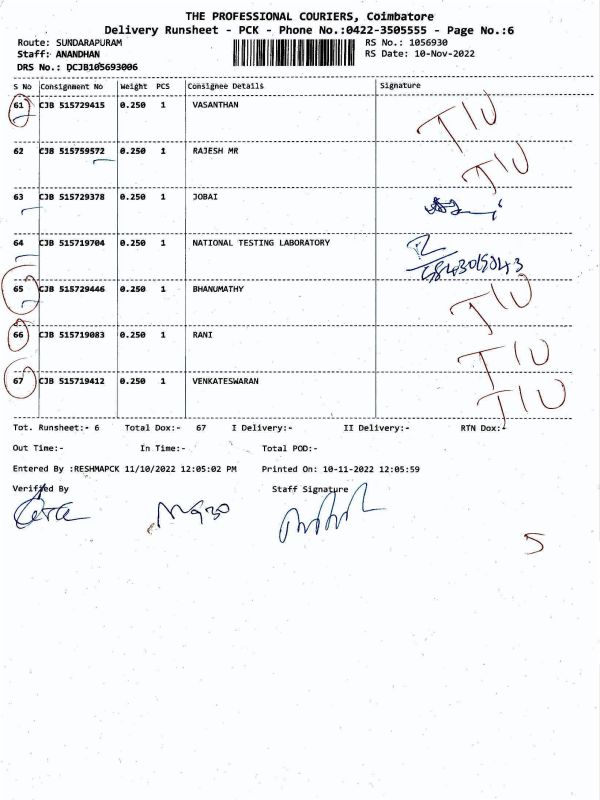 THE PROFESSIONAL COURIERS, Coimbatore
Delivery Runsheet - PCK - Phone No.:0422-3505555 - Page No.:6
Route: SUNDARAPURAM RS No.: 1056930
Staff: ANANDHAN RS Date: 10-Nov-2022
DRS No.: DCJB105693006
S No Consignment No Weight PCS Consignee Details Signature
61 CJB 515729415 0.250 1 VASANTHAN TIU
62 CJB 515759572 0.250 1 RAJESH MR TIU
63 CJB 515729378 0.250 1 JOBAI
64 CJB 515719704 0.250 1 NATIONAL TESTING LABORATORY
65 CJB 515729446 0.250 1 BHANUMATHY TIU
66 CJB 515719083 0.250 1 RANI TIU
67 CJB 515719412 0.250 1 VENKATESWARAN TIU
Tot. Runsheet:- 6 Total Dox:- 67 I Delivery:- II Delivery:- RTN Dox:-
Out Time:- In Time:- Total POD:-
Entered By :RESHMAPCK 11/10/2022 12:05:02 PM Printed On: 10-11-2022 12:05:59
Verified By Staff Signature
5